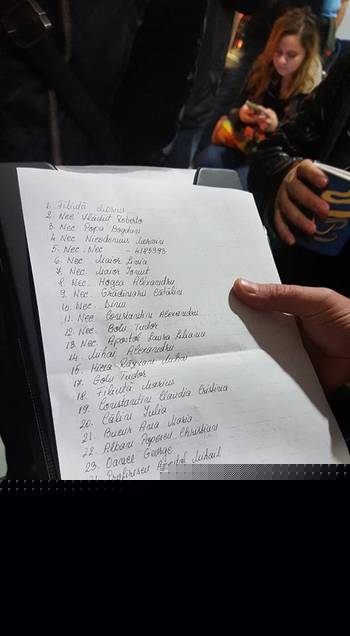 1. Filiută Marius
2. Nec Vlăduț Roberto
3. Nec Popa Bogdan
4. Nec Nicodemus Mariani
5. Nec. Nec - 4185393
6. Nec Maior Livia
7. Nec. Maior Ionut
8. Nec. Hogea Alexandru
9. Nec. Grădinaru Cătălin
10. Nec. Dinu
11. Nec Constantiru Alexandru
12. Nec. Golu Tudor
13. Nec. Apostol Laura Liliana
14. Mihai Alexandru
15. Mirea Răzvan Mihai
17. Golu Tudor
18. Filiută Marius
19. Constantiru Claudia Cristina
20. Călin Iulia
21. Bucur Ana Maria
22. Alban Popescu Christian
23. Daniel George
Apostol Mihail